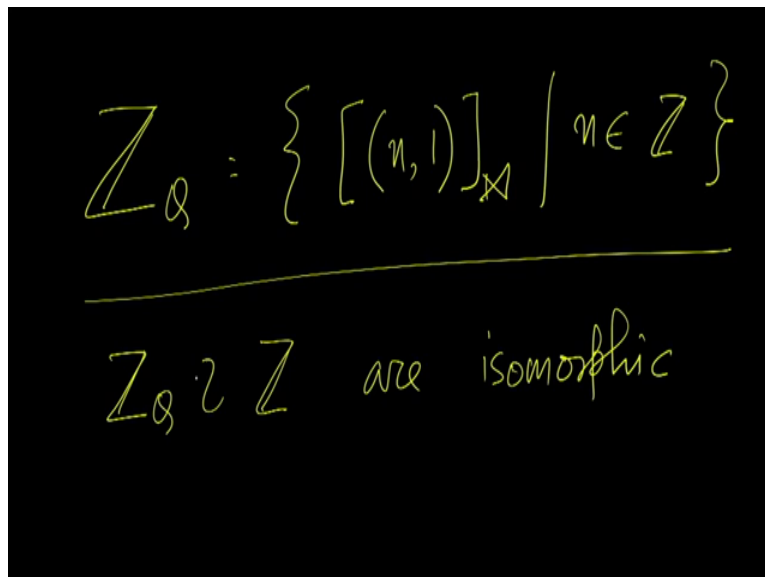 ℤ_Q : { [(n,1)]_⋈ | n ∈ ℤ }
ℤ_Q ≀ ℤ are isomorphic